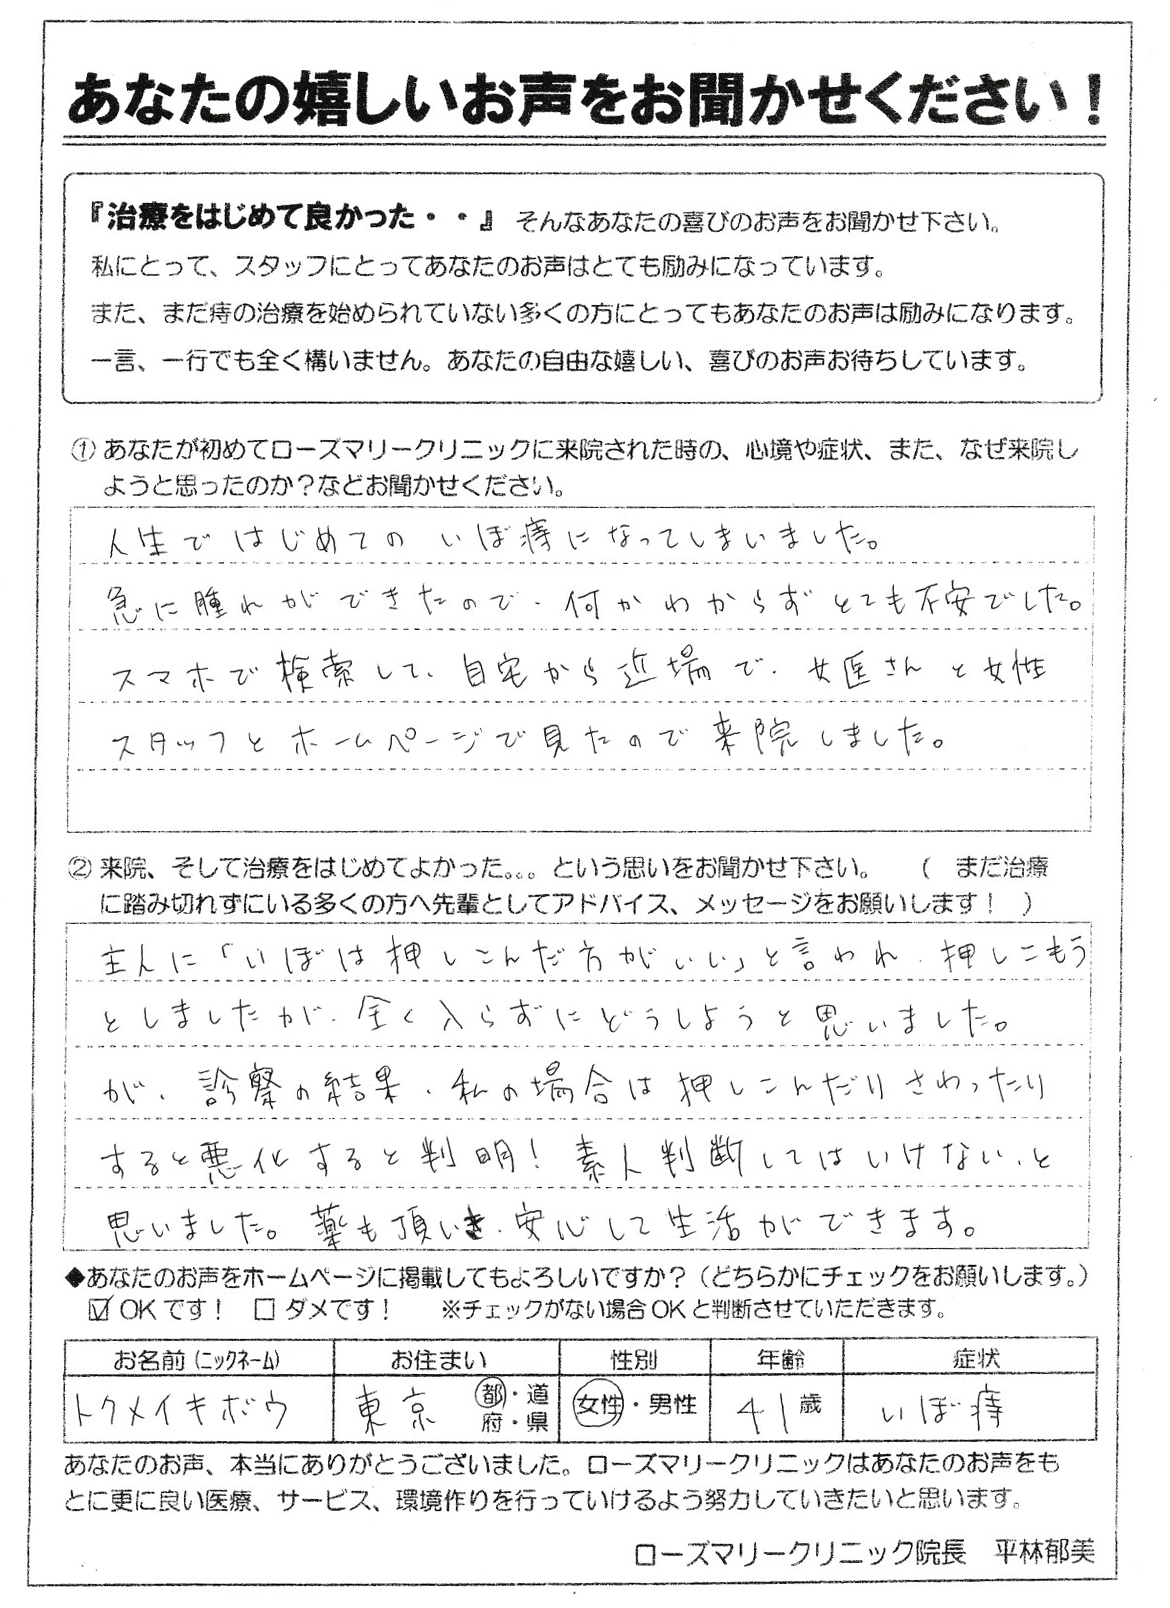 あなたの嬉しいお声をお聞かせください！
『治療をはじめて良かった・・』 そんなあなたの喜びのお声をお聞かせ下さい。
私にとって、スタッフにとってあなたのお声はとても励みになっています。
また、まだ痔の治療を始められていない多くの方にとってもあなたのお声は励みになります。
一言、一行でも全く構いません。あなたの自由な嬉しい、喜びのお声お待ちしています。
① あなたが初めてローズマリークリニックに来院された時の、心境や症状、また、なぜ来院し
ようと思ったのか？などお聞かせください。
人生ではじめての いぼ痔になってしまいました。
急に腫れができたので、何かわからずとても不安でした。
スマホで検索して、自宅から近場で、女医さんと女性
スタッフとホームページで見たので来院しました。
② 来院、そして治療をはじめてよかった。。。という思いをお聞かせ下さい。 （ まだ治療
に踏み切れずにいる多くの方へ先輩としてアドバイス、メッセージをお願いします！ ）
主人に「いぼは押しこんだ方がいい」と言われ、押しこもう
としましたが、全く入らずにどうしようと思いました。
が、診察の結果、私の場合は押しこんだりさわったり
すると悪化すると判明！素人判断してはいけない、と
思いました。薬も頂いき、安心して生活ができます。
◆あなたのお声をホームページに掲載してもよろしいですか？（どちらかにチェックをお願いします。）
☑ OKです！ □ ダメです！ ※チェックがない場合OKと判断させていただきます。
お名前（ニックネーム） お住まい 性別 年齢 症状
トクメイキボウ 東京 都・道 女性・男性 41歳 いぼ痔
府・県
あなたのお声、本当にありがとうございました。ローズマリークリニックはあなたのお声をも
とに更に良い医療、サービス、環境作りを行っていけるよう努力していきたいと思います。
ローズマリークリニック院長 平林郁美